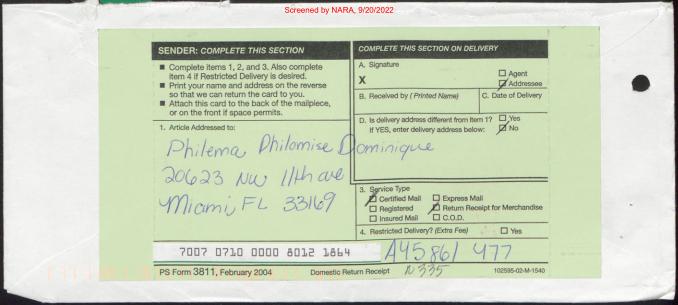 Screened by NARA, 9/20/2022
SENDER: COMPLETE THIS SECTION
■ Complete items 1, 2, and 3. Also complete
item 4 if Restricted Delivery is desired.
■ Print your name and address on the reverse
so that we can return the card to you.
■ Attach this card to the back of the mailpiece,
or on the front if space permits.
1. Article Addressed to:
Philema Philomise Dominique
20623 NW 11th ave
Miami, FL 33169
COMPLETE THIS SECTION ON DELIVERY
A. Signature
X
☐ Agent
☑ Addressee
B. Received by (Printed Name) C. Date of Delivery
D. Is delivery address different from item 1? ☐ Yes
If YES, enter delivery address below: ☑ No
3. Service Type
☑ Certified Mail ☐ Express Mail
☐ Registered ☑ Return Receipt for Merchandise
☐ Insured Mail ☐ C.O.D.
4. Restricted Delivery? (Extra Fee) ☐ Yes
7007 0710 0000 8012 1864
A45 861 477
PS Form 3811, February 2004 Domestic Return Receipt N335 102595-02-M-1540